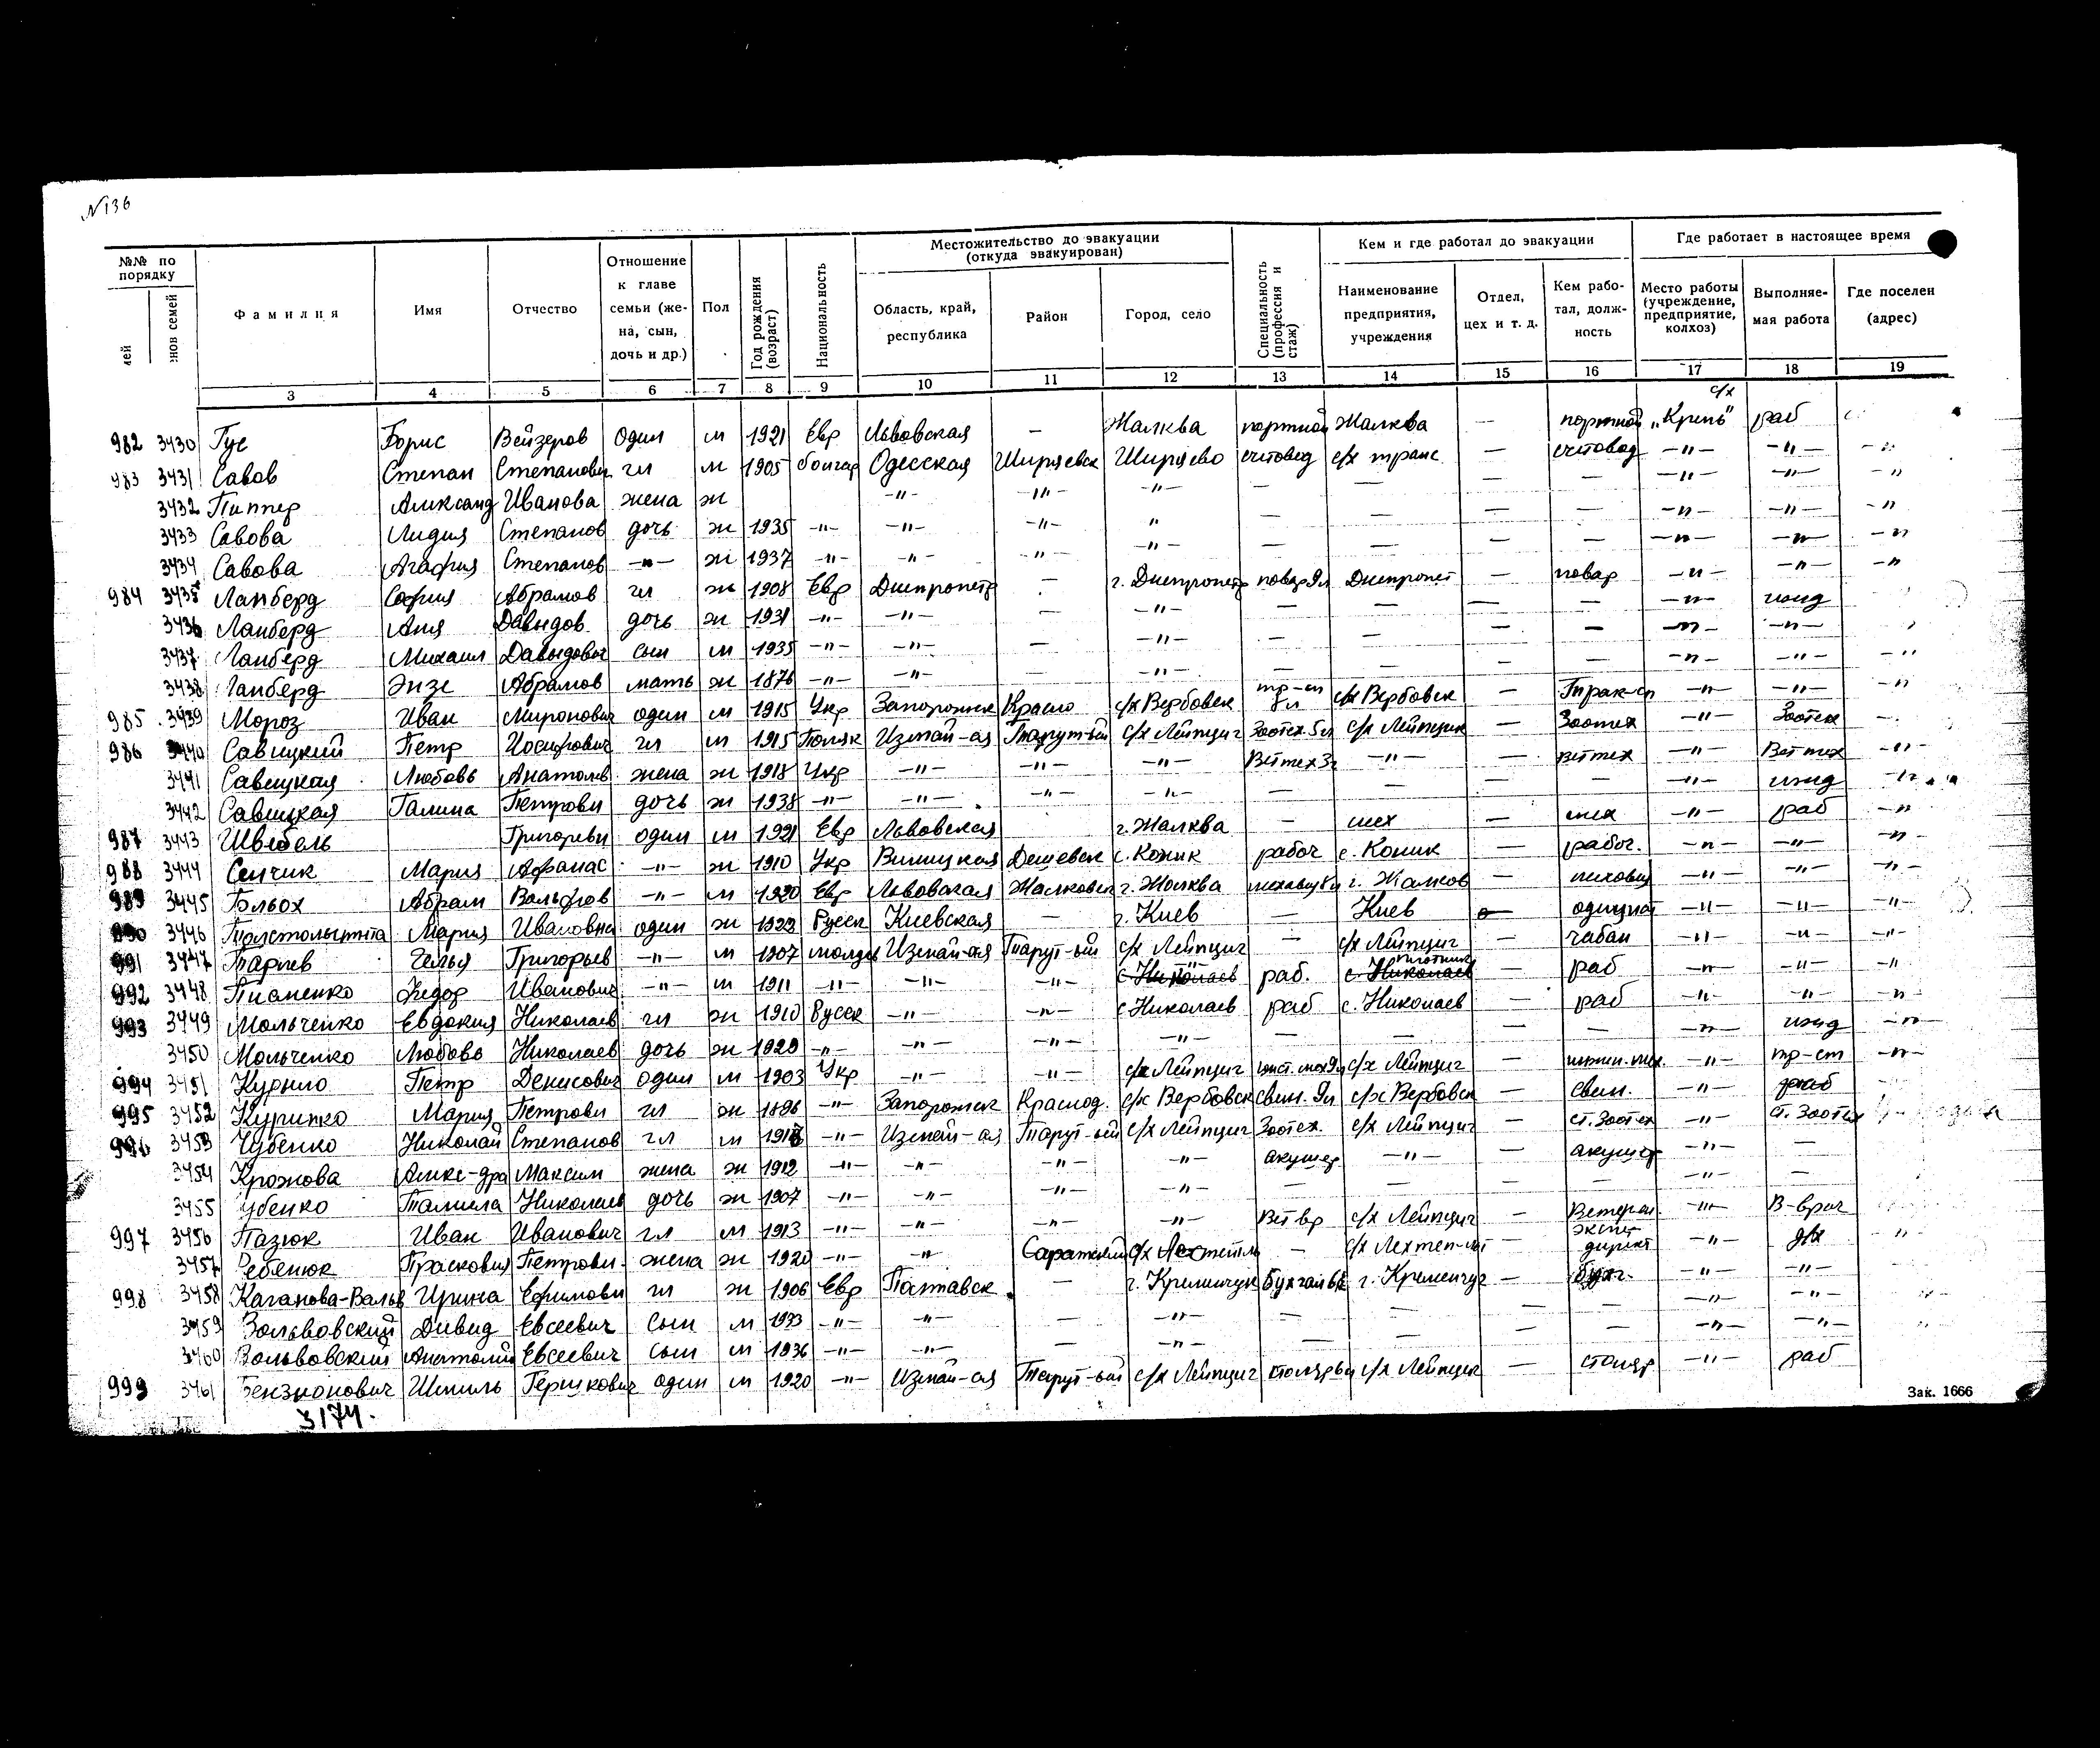 N136
№№ по порядку
Фамилия
Имя
Отчество
Отношение к главе семьи (жена, сын, дочь и др.)
Пол
Год рождения (возраст)
Национальность
Местожительство до эвакуации (откуда эвакуирован)
Область, край, республика
Район
Город, село
Специальность (профессия и стаж)
Кем и где работал до эвакуации
Наименование предприятия, учреждения
Отдел, цех и т. д.
Кем работал, должность
Где работает в настоящее время
Место работы (учреждение, предприятие, колхоз)
Выполняемая работа
Где поселен (адрес)
3 4 5 6 7 8 9 10 11 12 13 14 15 16 17 18 19
с/х
982 3430 Гус Борис Вейзеров один м 1921 Евр Львовская — Жалква портной Жалква — портной раб
983 3431 Савов Степан Степанович гл м 1905 болгар Одесская Ширяевск Ширяево счетовод с/х транс — счетовод —"— —"— —"
3432 Пиппер Александ Иванова жена ж —"— —"— —"— — — — — —"— —"— —"
3433 Савова Лидия Степанов дочь ж 1935 —"— —"— —"— " — — — — —"— —"— —"
3434 Савова Агафия Степанов —"— ж 1937 —"— —"— —"— —"— — — — — —"— —"— —"
984 3435 Ланберд София Абрамов гл ж 1908 Евр Днепропетр — г. Днепропетр повар 9л Днепропет — повар —"— —"— —"
3436 Ланберд Аня Давыдов дочь ж 1931 —"— —"— — —"— — — — — —"— ижд
3437 Ланберд Михаил Давыдович сын м 1935 —"— —"— — —"— — — — — —"— —"—
3438 Ланберд Энзе Абрамов мать ж 1876 —"— —"— —"— — — — — —"— —"— —"
985 3439 Мороз Иван Миронович один м 1915 Укр Запорожск Красно с/х Вербовск тр-ст с/х Вербовск — —"— —"— —"
986 3440 Савицкий Петр Иосифович гл м 1915 Поляк Измай-ая Тарут-ый с/х Лейпциг Зоотех. 5л с/х Лейпциг — Зоотех —"— Зоотех
3441 Савицкая Любовь Анатолев жена ж 1918 Укр —"— —"— —"— Ветех 3г —"— — ветех —"— Ветех —"—
3442 Савицкая Галина Петровн дочь ж 1938 —"— —"— —"— —"— — — — — —"— ижд —"
987 3443 Швебель Григорьеви один м 1921 Евр Львовская г. Жалква — мех — мех —"— раб —"
988 3444 Сенчик Мария Афанас —"— ж 1910 Укр Виницкая Дешевск с. Коник рабоч с. Коник — рабоч. —"— —"— —"
989 3445 Больох Абрам Вольфов —"— м 1920 Евр Львовская Жалковск г. Жолква г. Жалков — —"— —"— —"—
990 3446 Мария Ивановна один ж 1923 Русск Киевская — г. Киев — Киев —"— —"— —"—
991 3447 Григорьев —"— м 1907 молдав Измай-ая Тарут-ый с/х Лейпциг — с/х Лейпциг — чабан —"— —"— —"—
плотник
992 3448 Пианенко Федор Иванович —"— м 1911 —"— —"— —"— с Николаев раб. с. Николаев — раб —"— —"— —"
993 3449 Мольченко Евдокия Николаев гл ж 1910 Русск —"— —"— с Николаев раб с. Николаев — раб —"— —"— —"
3450 Мольченко Любовь Николаев дочь ж 1929 —"— —"— —"— —"— — — — — —"— ижд —"—
994 3451 Петр Денисович один м 1903 Укр —"— —"— с/х Лейпциг с/х Лейпциг — —"— тр-ст —"—
995 3452 Курипко Мария Петровн гл ж 1896 —"— Запорожск Краснод. с/х Вербовск свин. 9л с/х Вербовск — свин. —"— раб
996 3453 Чубенко Николай Степанов гл м —"— Измай-ая Тарут-ый с/х Лейпциг Зоотех. с/х Лейпциг — ст. Зоотех —"— ст. Зоотех
3454 Крожова Алекс-дра Максим жена ж 1912 —"— —"— —"— —"— акушер —"— — акушер —"— —
3455 Николаев дочь ж 1907 —"— —"— —"— —"— — — — — —"— —
997 3456 Пазюк Иван Иванович гл м 1913 —"— —"— —"— —"— Вет вр с/х Лейпциг — —"— В-врач
3457 Ребенюк Прасковия Петровн жена ж 1920 —"— —"— — —"—
998 3458 Каганова-Вальв Ирина Ефимовн гл ж 1906 Евр Палтавск — г. Кременчук г. Кременчуг — бухг. —"— —"—
3459 Вольвовский Давид Евсеевич сын м 1933 —"— —"— — —"— — — — — —"— —"—
3460 Вольвовский Анатолий Евсеевич сын м 1936 —"— —"— — —"— — — — — —"— —"—
999 3461 Бензионович Шмиль Гершкович один м 1920 —"— Измай-ая Тарут-ый с/х Лейпциг с/х Лейпциг — столяр —"— раб
3174.
Зак. 1666